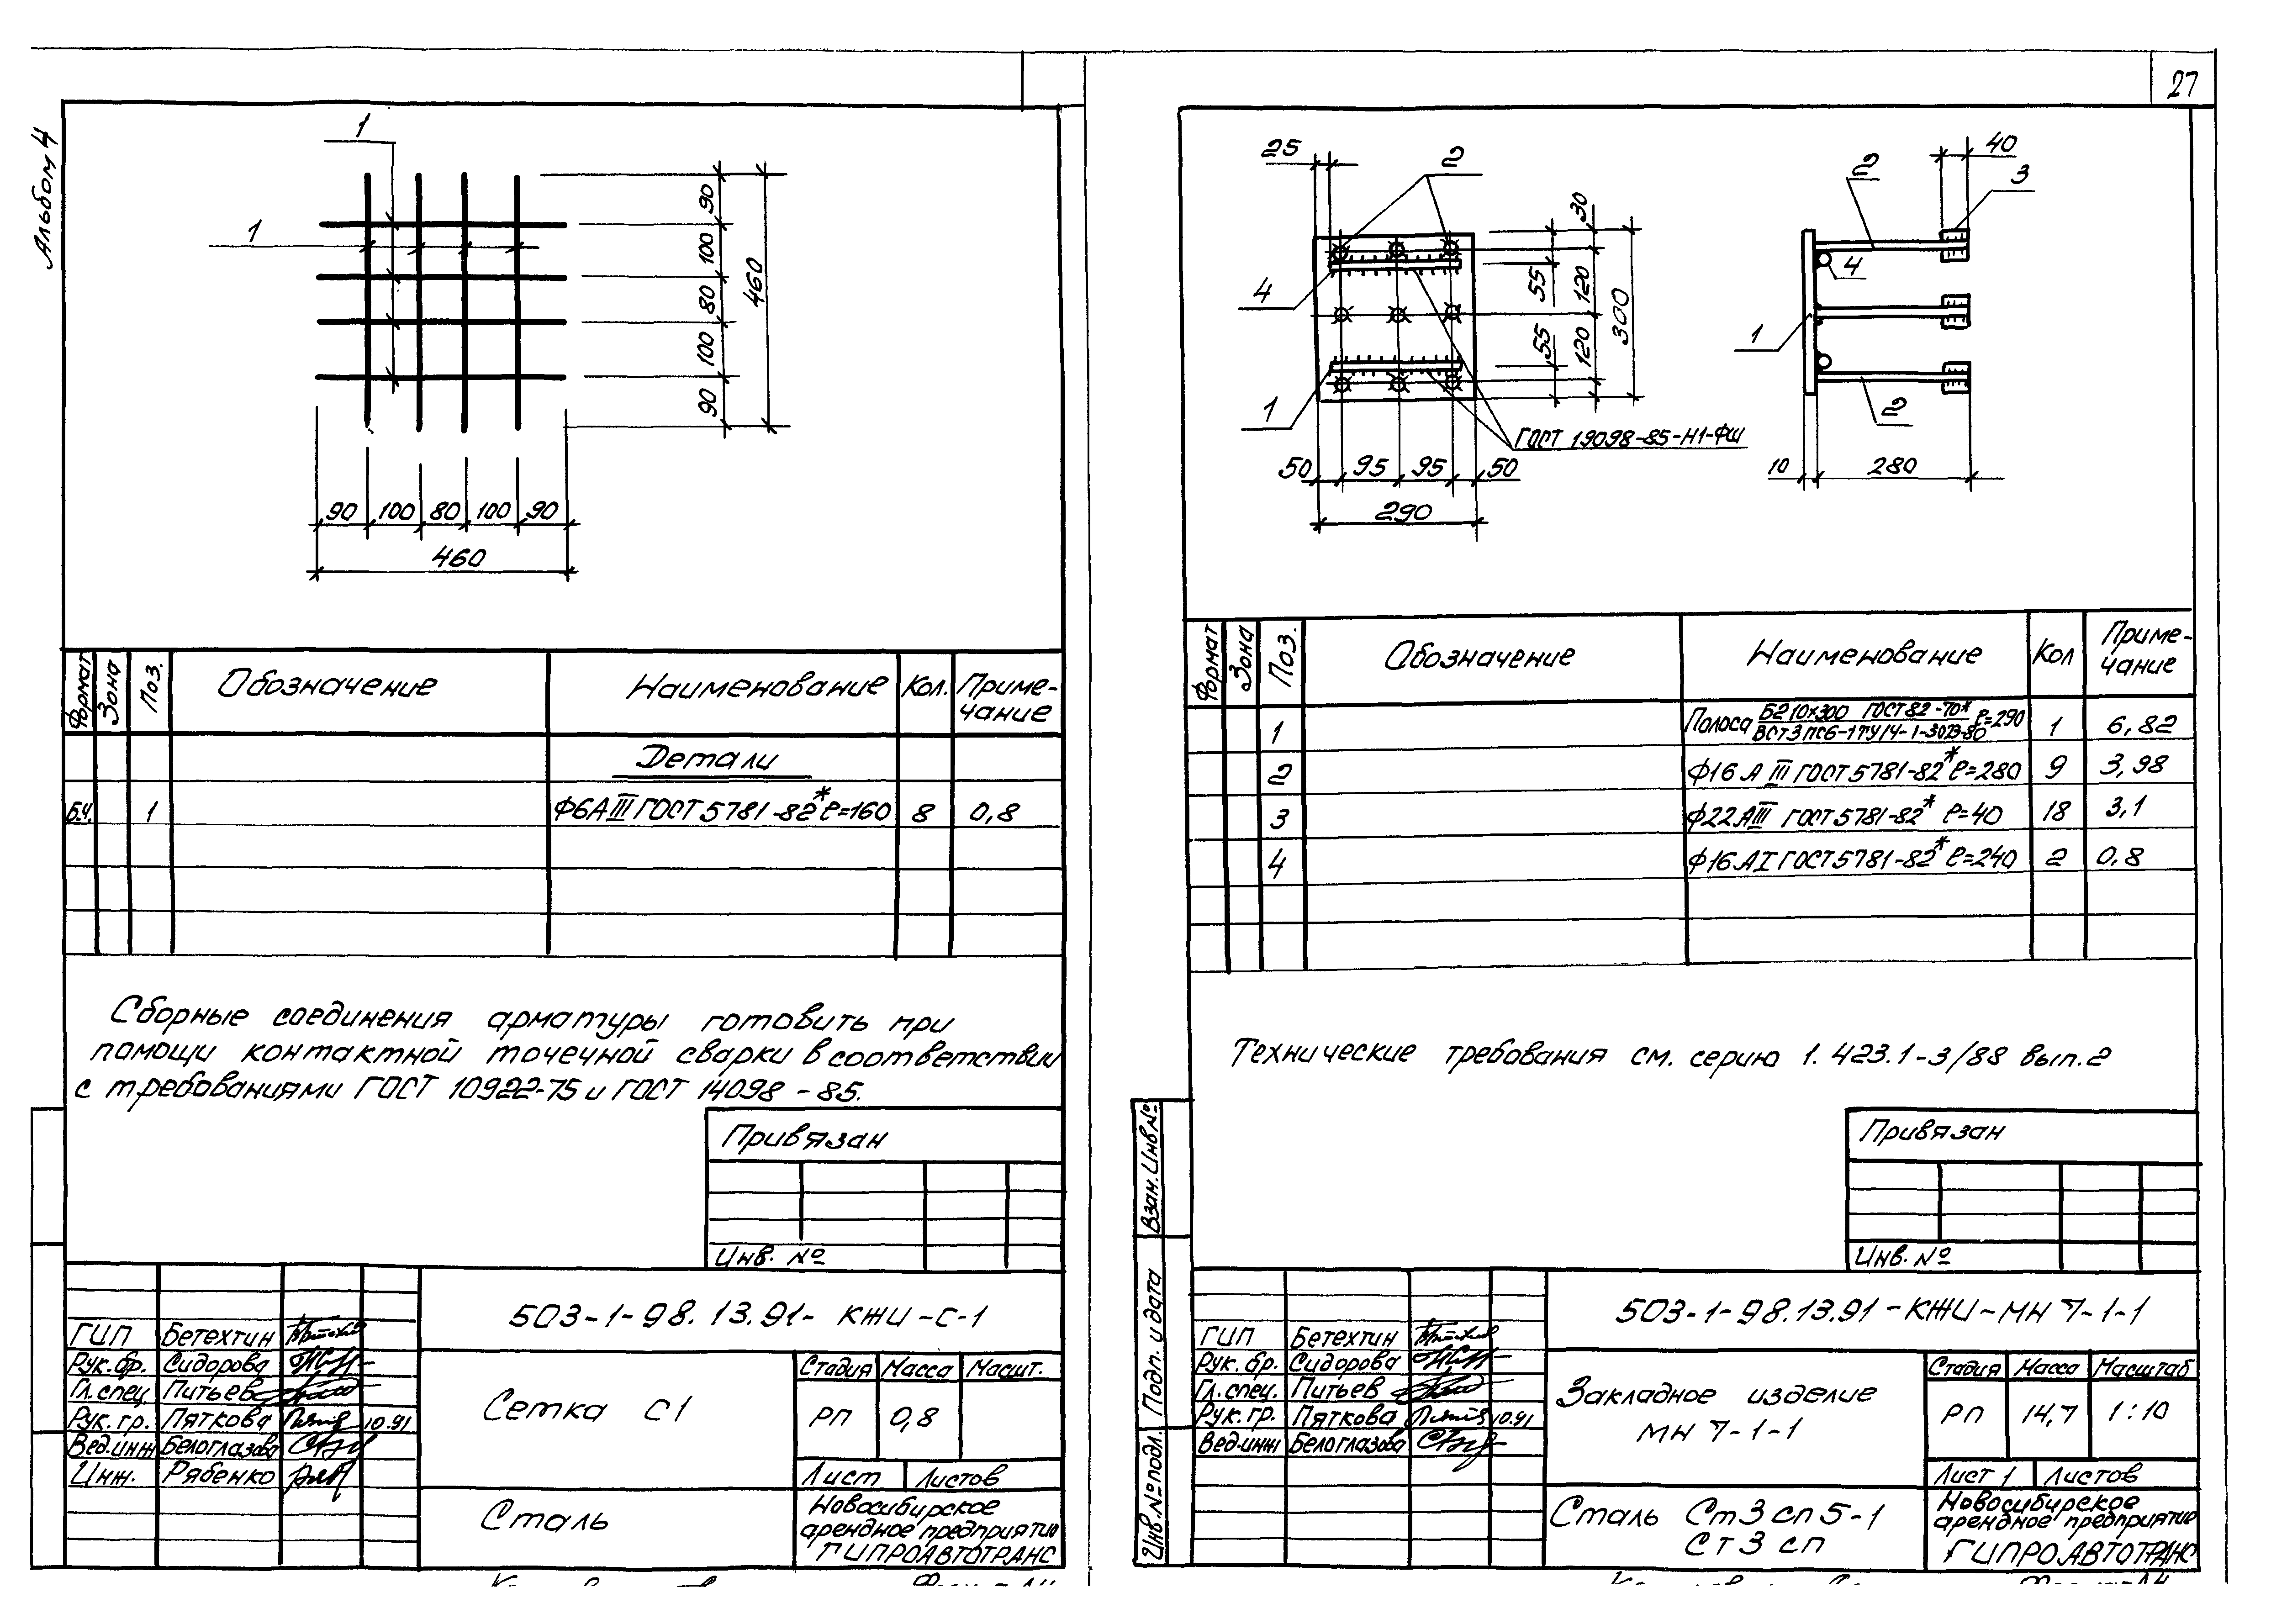 27
Альбом 4
1
1
90
100
80
100
90
460
90 100 80 100 90
460
Формат Зона Поз. Обозначение Наименование Кол. Приме-
чание
Детали
Б.Ч. 1 Ф6АIII ГОСТ 5781-82* ℓ=160 8 0,8
Сборные соединения арматуры готовить при
помощи контактной точечной сварки в соответствии
с требованиями ГОСТ 10922-75 и ГОСТ 14098-85.
Привязан
Инв. №
503-1-98.13.91- КЖИ-С-1
ГИП Бетехтин
Рук. бр. Сидорова
Гл. спец. Питьев
Рук. гр. Пяткова 10.91
Вед.инж Белоглазова
Инж. Рябенко
Сетка С1
Стадия Масса Масшт.
РП 0,8
Лист Листов
Сталь
Новосибирское
арендное предприятие
ГИПРОАВТОТРАНС
25
2
4
1
30
120
120
55
55
300
ГОСТ 19098-85-Н1-ФШ
50 95 95 50
290
2
40
3
4
1
2
10 280
Формат Зона Поз. Обозначение Наименование Кол Приме-
чание
1 Полоса Б2 10х300 ГОСТ 82-70* ℓ=290 1 6,82
ВСТ3ПС6-1ТУ14-1-3023-80
2 Ф16 АIII ГОСТ 5781-82* ℓ=280 9 3,98
3 Ф22АIII ГОСТ 5781-82* ℓ=40 18 3,1
4 Ф16 АI ГОСТ 5781-82* ℓ=240 2 0,8
Технические требования см. серию 1.423.1-3/88 вып.2
Привязан
Инв. №
Взам. Инв.№
Подп. и дата
Инв.№ подл.
503-1-98.13.91-КЖИ-МН 7-1-1
ГИП Бетехтин
Рук. бр. Сидорова
Гл. спец. Питьев
Рук. гр. Пяткова 10.91
Вед.инж Белоглазова
Закладное изделие
МН 7-1-1
Стадия Масса Масштаб
РП 14,7 1:10
Лист 1 Листов
Сталь Ст3 сп5-1
Ст3 сп
Новосибирское
арендное предприятие
ГИПРОАВТОТРАНС